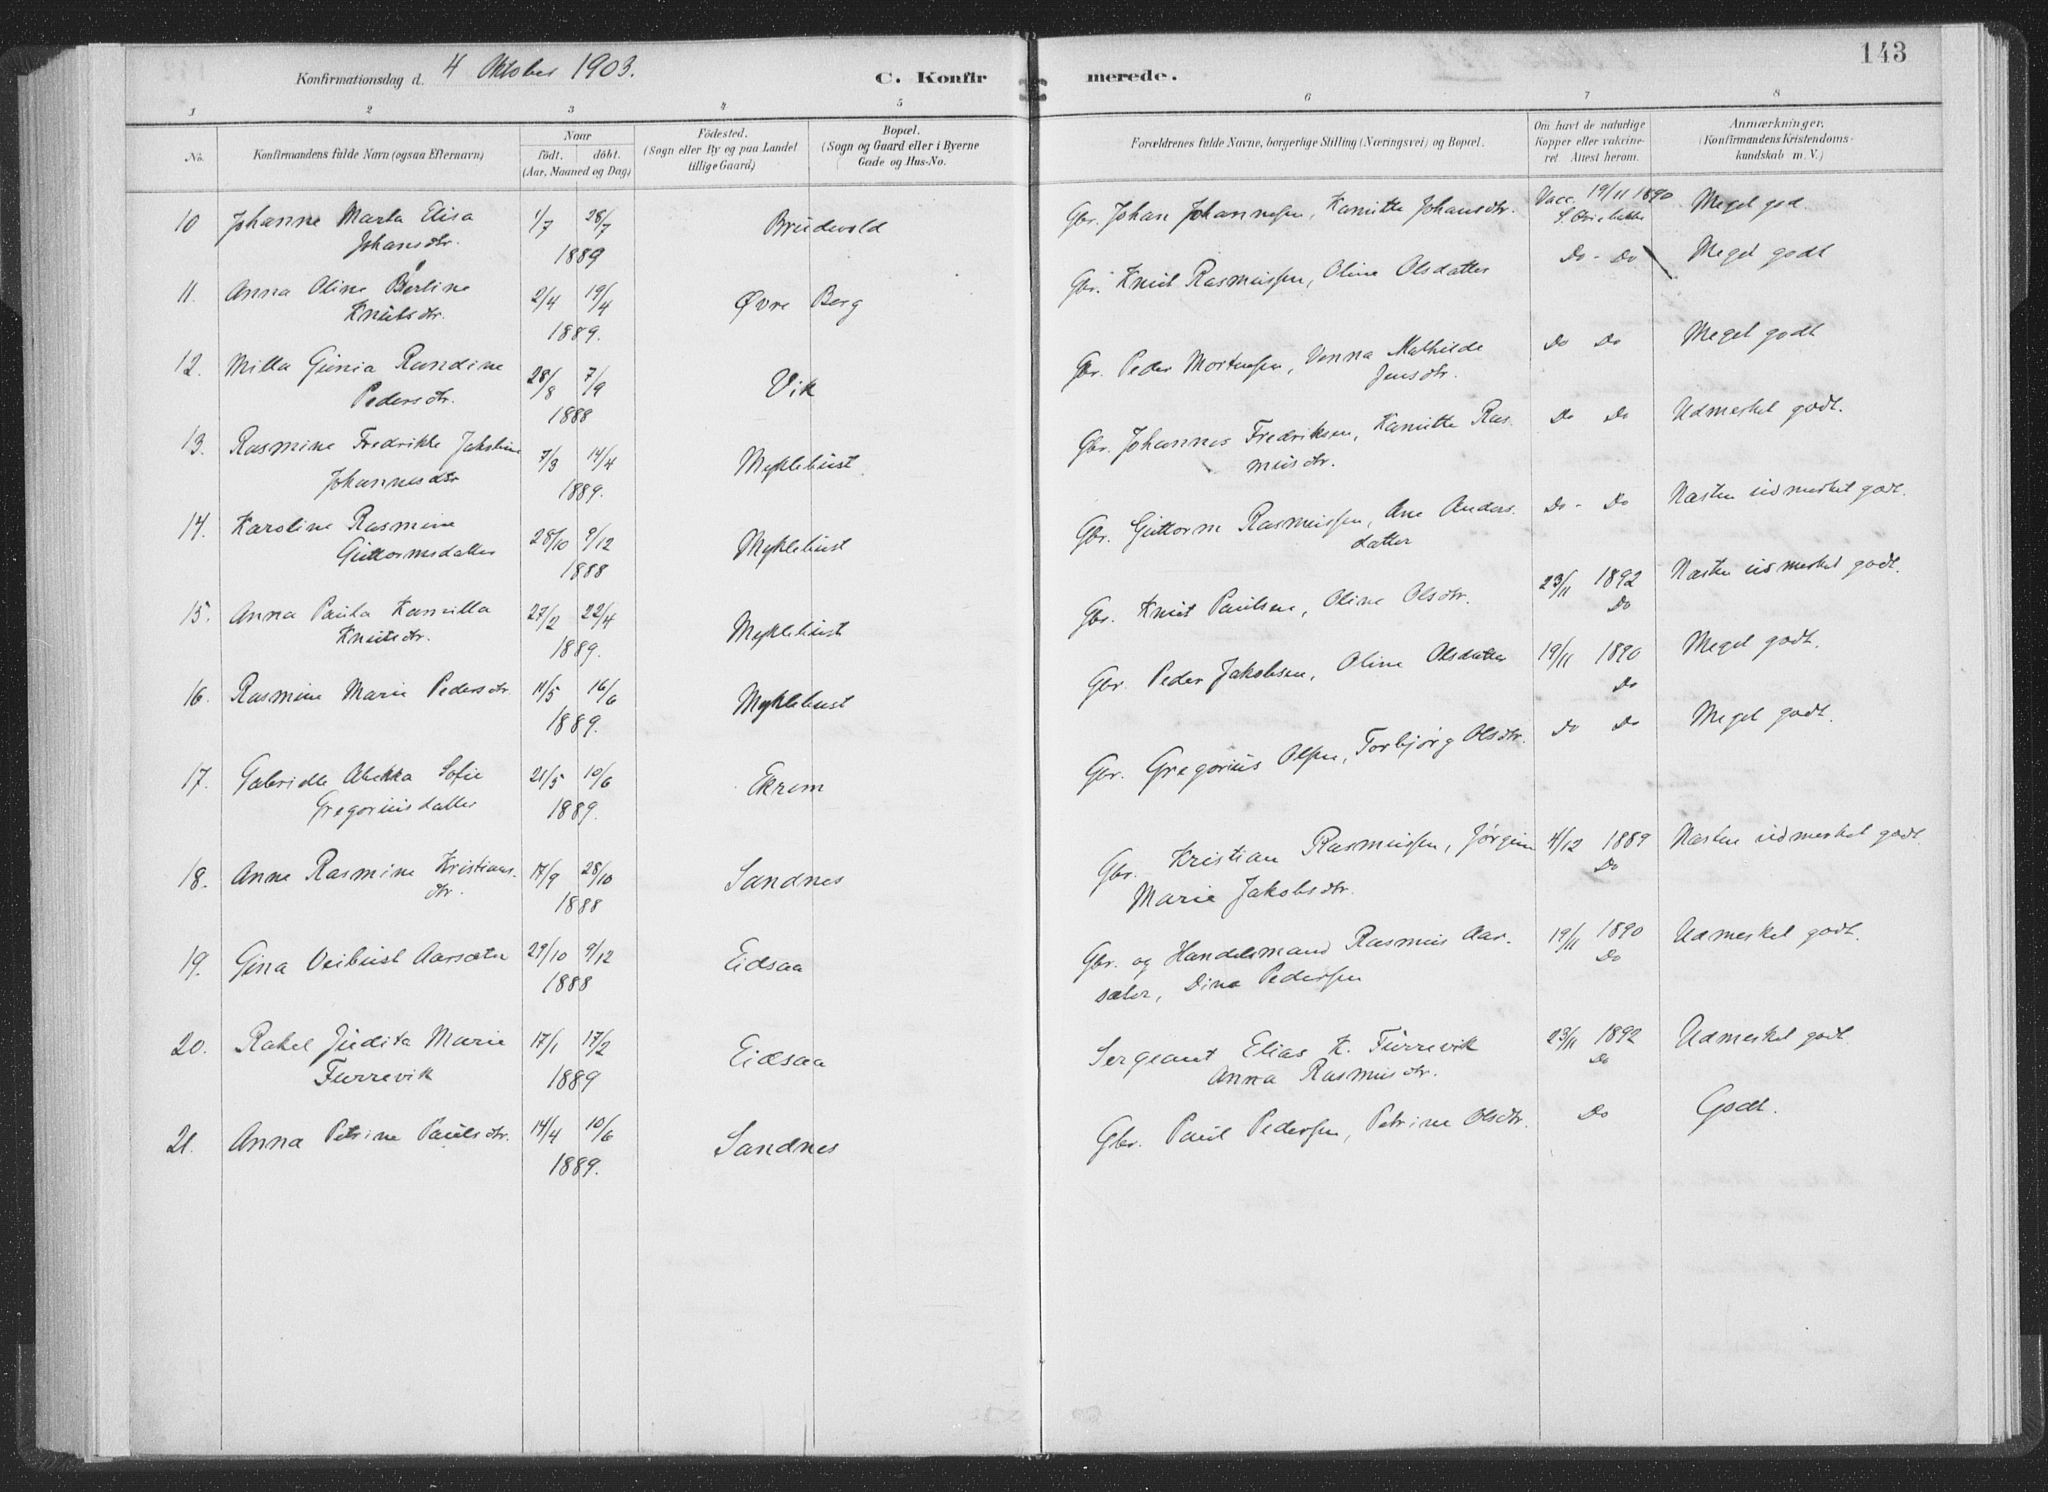 143
Konfirmationsdag d. 4 Oktober 1903. C. Konfirmerede.
1 2 3 4 5 6 7 8
No. Konfirmandens fulde Navn (ogsaa Efternavn) Naar födt. döbt. (Aar, Maaned og Dag) Födested. (Sogn eller By og paa Landet tillige Gaard) Bopæl. (Sogn og Gaard eller i Byerne Gade og Hus-No. Forældrenes fulde Navne, borgerlige Stilling (Næringsvei) og Bopæl. Om havt de naturlige Kopper eller vakcineret Attest herom. Anmærkninger. (Konfirmandens Kristendomskundskab m. V.)
10 Johanne Marta Elisa 1/7 28/7 Brudevold Gbr. Johan Johannesen, Kamitte Johansdtr. Vacc. 19/11 1890 Meget god
Johansdtr. 1889
11. Anna Oline Berline 2/4 19/4 Øvre Berg Gbr. Knut Rasmussen, Oline Olsdatter Do - Do Meget godt
Knutsdtr. 1889.
12. Milla Ginia Randine 28/8 7/9 Vik Gbr. Peder Mortensen, Vonna Mathilde Do Do Meget godt
Pedersdtr. 1888 Jensdtr.
13. Rasmine Fredrikke Jakobine 7/3 14/4 Myklebust Gbr. Johannes Fredriksen, Kamitte Ras- Do Do Udmerket godt.
Johannesdtr 1889. musdtr.
14. Karoline Rasmine 28/10 9/12 Myklebust Gbr. Guttorm Rasmussen, Ane Anders- Do - Do Næsten udmerket godt.
Guttormsdatter 1888 datter
15. Anna Paula Kamilla 27/2 22/4 Myklebust Gbr. Knut Paulsen, Oline Olsdtr. 23/11 1892 Næsten udmerket godt.
Knutsdtr. 1889. Do
16. Rasmine Marie Pedersdtr. 11/5 16/6 Myklebust Gbr. Peder Jakobsen, Oline Olsdatter 19/11 1890 Meget godt.
1889. Do
17. Gabrielle Abekka Sofie 21/5 10/6 Ekrem Gbr. Gregorius Olsen, Torbjørg Olsdtr. Do Do Meget godt.
Gregoriusdatter 1889.
18. Anne Rasmine Kristians- 17/9 28/10 Sandnes Gbr. Kristian Rasmussen, Jørgine 4/12 1889 Næsten udmerket godt.
dtr. 1888 Marie Jakobsdtr. Do
19. Gina Osibust Aarsæter 29/10 9/12 Eidsaa Gbr. og Handelsmand Rasmus Aar- 19/11 1890 Udmerket godt.
1888 sæter, Dina Pedersen Do
20. Rakel Judita Marie 17/1 17/2 Eidsaa Sergeant Elias K. Furrevik 23/11 1892 Udmerket godt.
Furrevik 1889 Anna Rasmusdtr. Do
21. Anna Petrine Paulsdtr. 14/4 10/6 Sandnes Gbr. Paul Pedersen, Petrine Olsdtr. Do Godt.
1889.